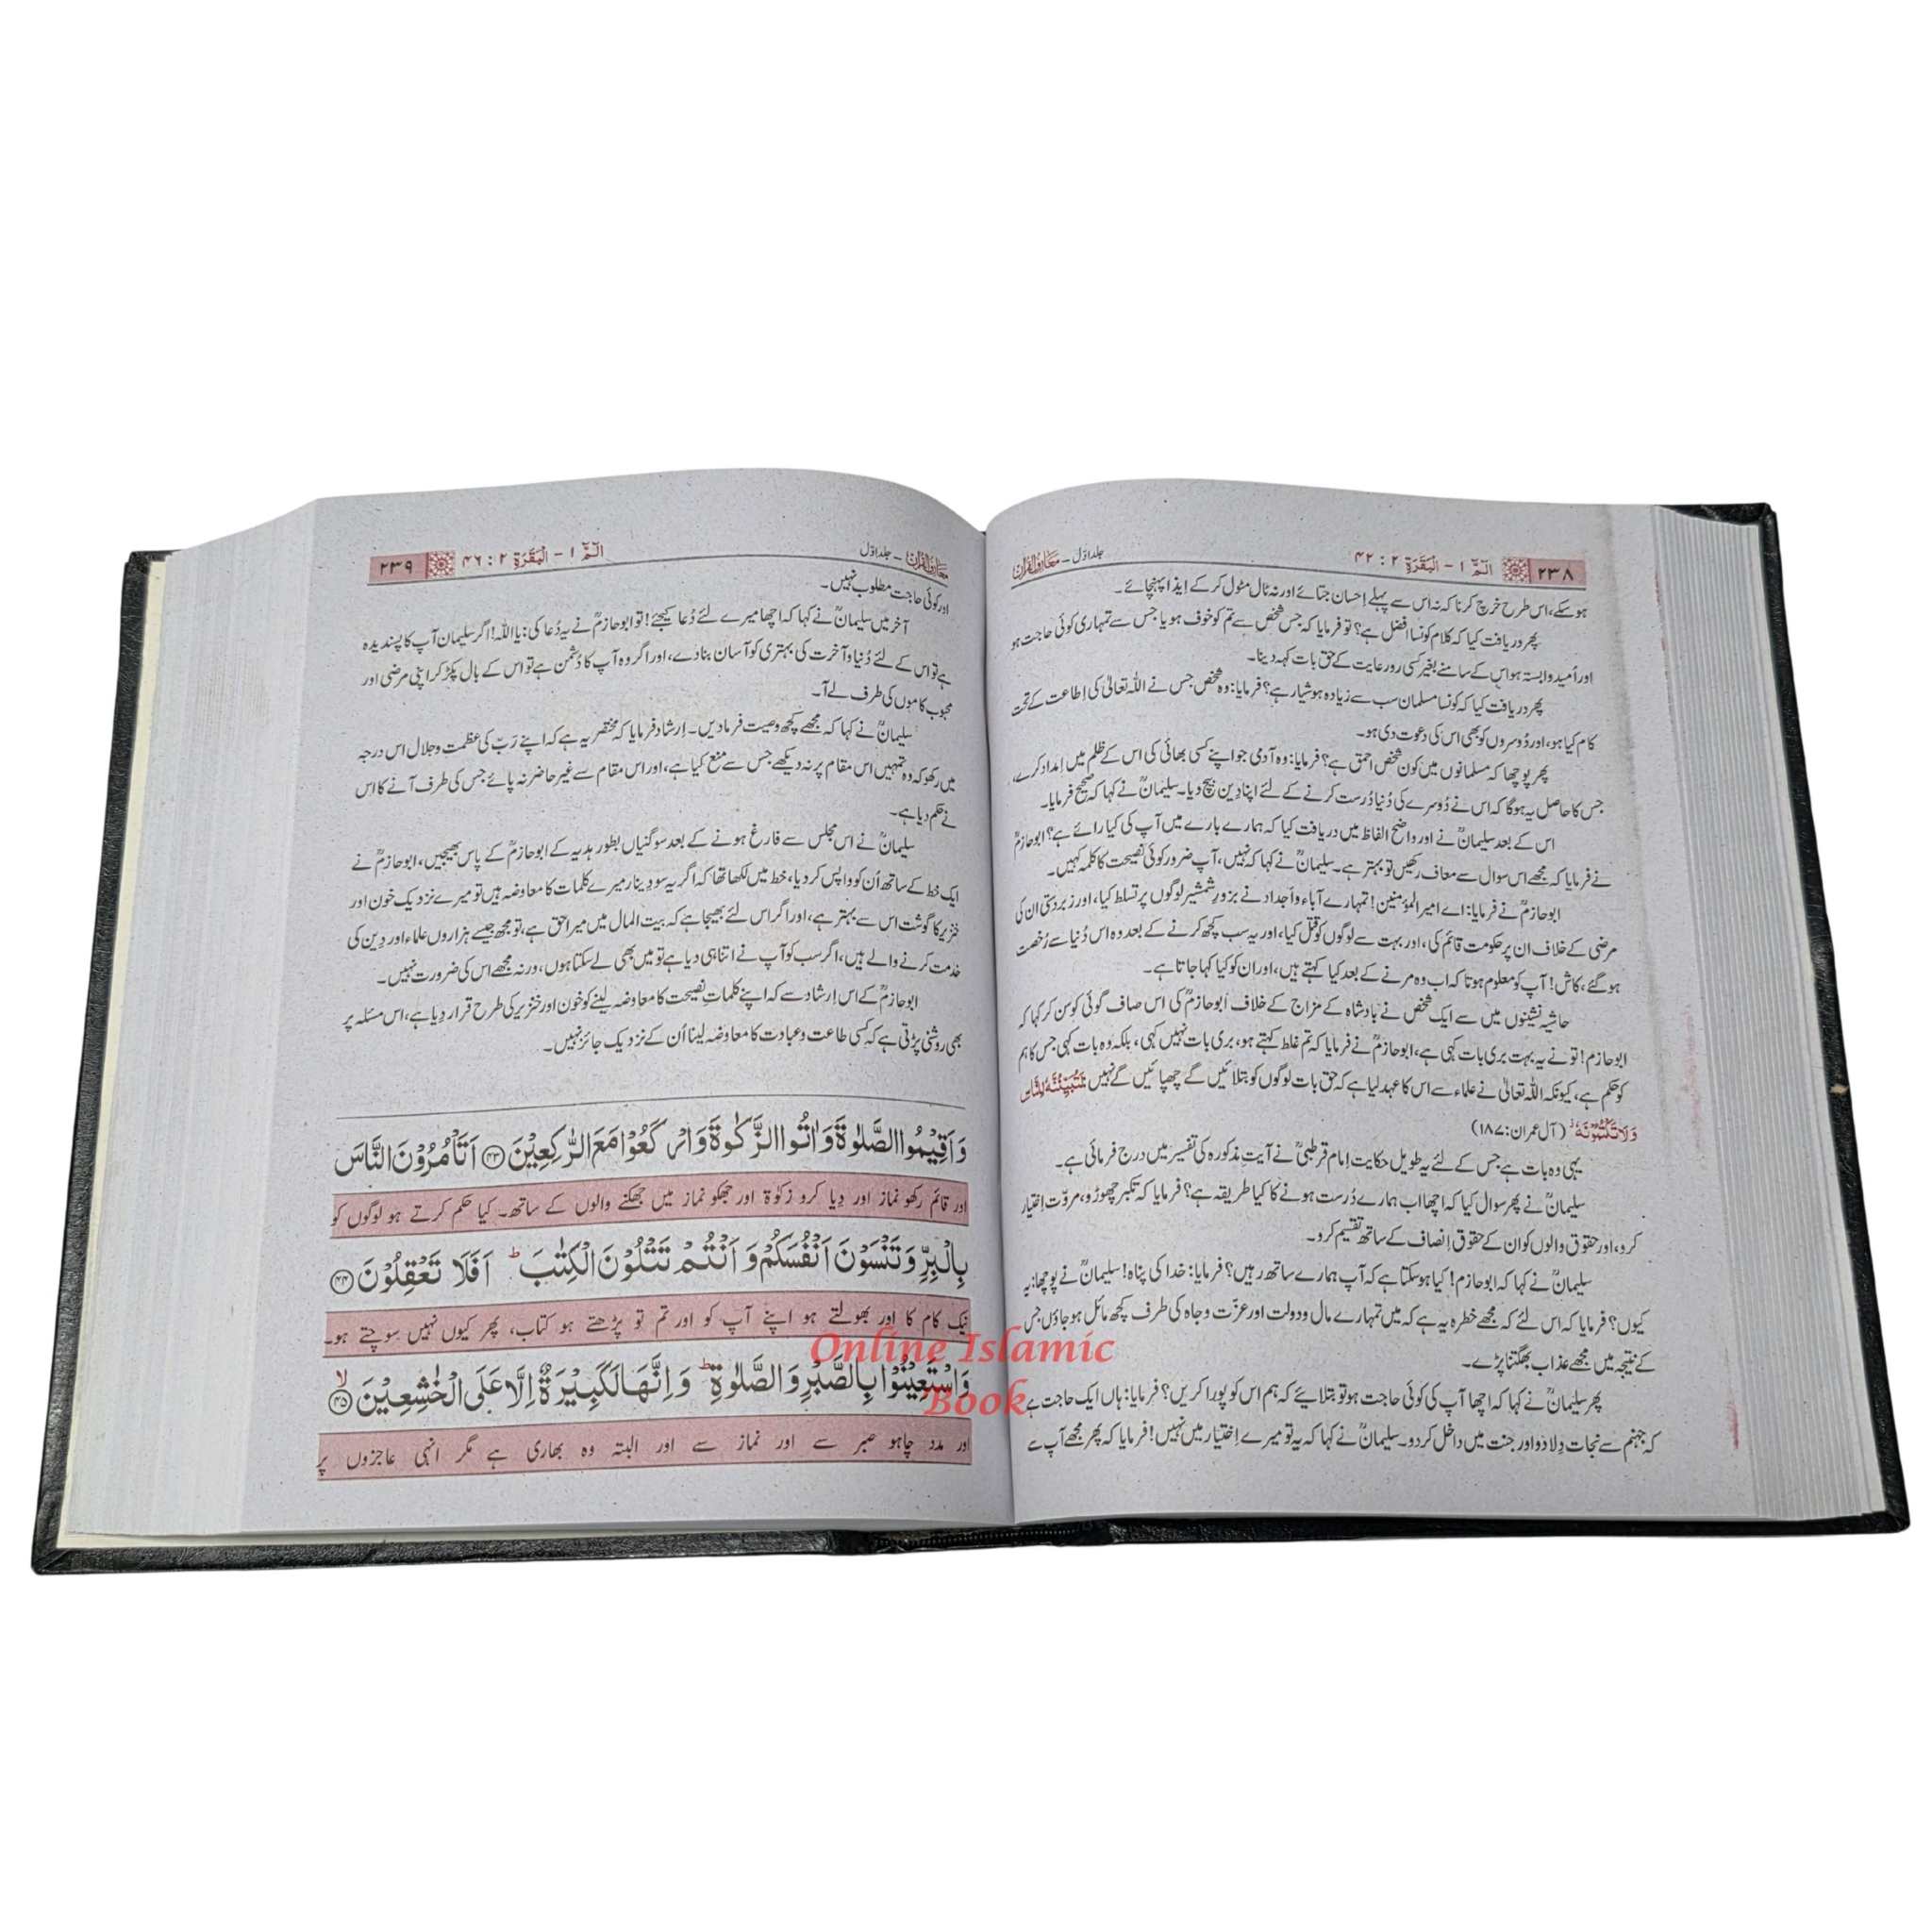 ۲۳۸ الٓمّٓ ۱ - الْبَقَرَةِ ۲ : ۴۲ جلد اوّل - معارف القرآن
ہو سکے، اس طرح خرچ کرنا کہ نہ اس سے پہلے اِحسان جتائے اور نہ ٹال مٹول کرکے اِیذا پہنچائے۔
پھر دریافت کیا کہ کلام کونسا افضل ہے؟ تو فرمایا کہ جس شخص سے تم کو خوف ہو یا جس سے تمہاری کوئی حاجت ہو
اور اُمید وابستہ ہو اس کے سامنے بغیر کسی رور عایت کے حق بات کہہ دینا۔
پھر دریافت کیا کہ کونسا مسلمان سب سے زیادہ ہوشیار ہے؟ فرمایا: وہ شخص جس نے اللہ تعالیٰ کی اِطاعت کے تحت
کام کیا ہو، اور دُوسروں کو بھی اس کی دعوت دی ہو۔
پھر پوچھا کہ مسلمانوں میں کون شخص احمق ہے؟ فرمایا: وہ آدمی جو اپنے کسی بھائی کی اس کے ظلم میں اِمداد کرے،
جس کا حاصل یہ ہوگا کہ اس نے دُوسرے کی دُنیا دُرست کرنے کے لئے اپنا دِین بیچ دیا۔ سلیمانؒ نے کہا کہ صحیح فرمایا۔
اس کے بعد سلیمانؒ نے اور واضح الفاظ میں دریافت کیا کہ ہمارے بارے میں آپ کی کیا رائے ہے؟ ابوحازمؒ
نے فرمایا کہ مجھے اس سوال سے معاف رکھیں تو بہتر ہے۔ سلیمانؒ نے کہا کہ نہیں، آپ ضرور کوئی نصیحت کا کلمہ کہیں۔
ابوحازمؒ نے فرمایا: اے امیر المؤمنین! تمہارے آباء و اَجداد نے بزورِ شمشیر لوگوں پر تسلط کیا، اور زبردستی ان کی
مرضی کے خلاف ان پر حکومت قائم کی، اور بہت سے لوگوں کو قتل کیا، اور یہ سب کچھ کرنے کے بعد وہ اس دُنیا سے رُخصت
ہوگئے، کاش! آپ کو معلوم ہوتا کہ اب وہ مرنے کے بعد کیا کہتے ہیں، اور ان کو کیا کہا جاتا ہے۔
حاشیہ نشینوں میں سے ایک شخص نے بادشاہ کے مزاج کے خلاف ابوحازمؒ کی اس صاف گوئی کو سن کر کہا کہ
ابوحازم! تو نے یہ بہت بری بات کہی ہے، ابوحازمؒ نے فرمایا کہ تم غلط کہتے ہو، بری بات نہیں کہی، بلکہ وہ بات کہی جس کا ہم
کو حکم ہے، کیونکہ اللہ تعالیٰ نے علماء سے اس کا عہد لیا ہے کہ حق بات لوگوں کو بتلائیں گے چھپائیں گے نہیں لَتُبَيِّنُنَّهُ لِلنَّاسِ
وَلَا تَكْتُمُوْنَهٗ (آل عمران:۱۸۷)
یہی وہ بات ہے جس کے لئے یہ طویل حکایت اِمام قرطبیؒ نے آیتِ مذکورہ کی تفسیر میں درج فرمائی ہے۔
سلیمانؒ نے پھر سوال کیا کہ اچھا اب ہمارے دُرست ہونے کا کیا طریقہ ہے؟ فرمایا کہ تکبر چھوڑو، مروّت اِختیار
کرو، اور حقوق والوں کو ان کے حقوق اِنصاف کے ساتھ تقسیم کرو۔
سلیمانؒ نے کہا کہ ابوحازم! کیا ہوسکتا ہے کہ آپ ہمارے ساتھ رہیں؟ فرمایا: خدا کی پناہ! سلیمانؒ نے پوچھا: یہ
کیوں؟ فرمایا کہ اس لئے کہ مجھے خطرہ یہ ہے کہ میں تمہارے مال و دولت اور عزّت و جاہ کی طرف کچھ مائل ہوجاؤں جس
کے نتیجہ میں مجھے عذاب بھگتنا پڑے۔
پھر سلیمانؒ نے کہا کہ اچھا آپ کی کوئی حاجت ہو تو بتلائیے کہ ہم اس کو پورا کریں؟ فرمایا: ہاں ایک حاجت ہے
کہ جہنم سے نجات دِلادو اور جنت میں داخل کردو۔ سلیمانؒ نے کہا کہ یہ تو میرے اِختیار میں نہیں! فرمایا کہ پھر مجھے آپ سے
معارف القرآن - جلد اوّل الٓمّٓ ۱ - الْبَقَرَةِ ۲ : ۴۶ ۲۳۹
اور کوئی حاجت مطلوب نہیں۔
آخر میں سلیمانؒ نے کہا کہ اچھا میرے لئے دُعا کیجئے! تو ابوحازمؒ نے یہ دُعا کی: یا اللہ! اگر سلیمان آپ کا پسندیدہ
ہے تو اس کے لئے دُنیا و آخرت کی بہتری کو آسان بنادے، اور اگر وہ آپ کا دُشمن ہے تو اس کے بال پکڑ کر اپنی مرضی اور
محبوب کاموں کی طرف لے آ۔
سلیمانؒ نے کہا کہ مجھے کچھ وصیت فرمادیں۔ اِرشاد فرمایا کہ مختصر یہ ہے کہ اپنے رَبّ کی عظمت و جلال اس درجہ
میں رکھو کہ وہ تمہیں اس مقام پر نہ دیکھے جس سے منع کیا ہے، اور اس مقام سے غیر حاضر نہ پائے جس کی طرف آنے کا اس
نے حکم دیا ہے۔
سلیمانؒ نے اس مجلس سے فارغ ہونے کے بعد سو گنیاں بطور ہدیہ کے ابوحازمؒ کے پاس بھیجیں، ابوحازمؒ نے
ایک خط کے ساتھ اُن کو واپس کردیا، خط میں لکھا تھا کہ اگر یہ سو دِینار میرے کلمات کا معاوضہ ہیں تو میرے نزدیک خون اور
خنزیر کا گوشت اس سے بہتر ہے، اور اگر اس لئے بھیجا ہے کہ بیت المال میں میرا حق ہے، تو مجھ جیسے ہزاروں علماء اور دِین کی
خدمت کرنے والے ہیں، اگر سب کو آپ نے اتنا ہی دیا ہے تو میں بھی لے سکتا ہوں، ورنہ مجھے اس کی ضرورت نہیں۔
ابوحازمؒ کے اس اِرشاد سے کہ اپنے کلماتِ نصیحت کا معاوضہ لینے کو خون اور خنزیر کی طرح قرار دِیا ہے، اس مسئلہ پر
بھی روشنی پڑتی ہے کہ کسی طاعت و عبادت کا معاوضہ لینا اُن کے نزدیک جائز نہیں۔
وَاَقِيْمُوا الصَّلٰوةَ وَاٰتُوا الزَّكٰوةَ وَارْكَعُوْا مَعَ الرّٰكِعِيْنَ ۴۳ اَتَاْمُرُوْنَ النَّاسَ
اور قائم رکھو نماز اور دِیا کرو زکوٰۃ اور جھکو نماز میں جھکنے والوں کے ساتھ۔ کیا حکم کرتے ہو لوگوں کو
بِالْبِرِّ وَتَنْسَوْنَ اَنْفُسَكُمْ وَاَنْتُمْ تَتْلُوْنَ الْكِتٰبَ ؕ اَفَلَا تَعْقِلُوْنَ ۴۴
نیک کام کا اور بھولتے ہو اپنے آپ کو اور تم تو پڑھتے ہو کتاب، پھر کیوں نہیں سوچتے ہو۔
وَاسْتَعِيْنُوْا بِالصَّبْرِ وَالصَّلٰوةِ ؕ وَاِنَّهَا لَكَبِيْرَةٌ اِلَّا عَلَى الْخٰشِعِيْنَ ۴۵ لا
اور مدد چاہو صبر سے اور نماز سے اور البتہ وہ بھاری ہے مگر انہی عاجزوں پر
Online Islamic
Book